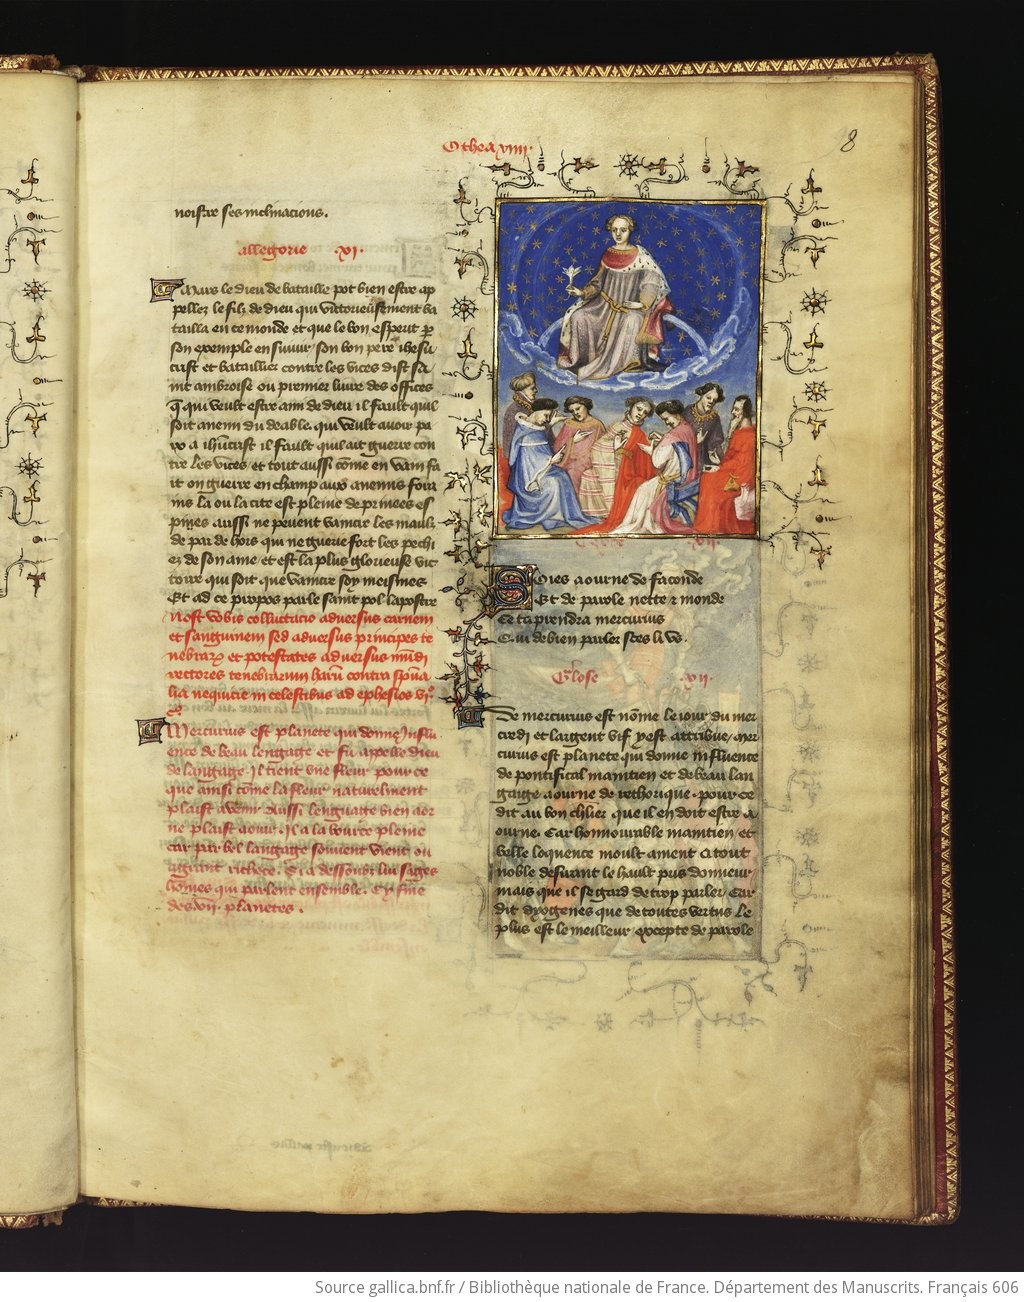 Othea xviii.
8
noistre ses inclinacions.
allegorie .xi.
Mars le dieu de bataille pot bien estre ap
pellez le filz de dieu qui victorieusement ba
tailla en ce monde et que le bon esperit par
son exemple ensuivir son bon pere ihesu
crist et bataillier contre les vices dist sa
int ambroise ou premier livre des offices
que qui veult estre ami de dieu il fault quil
soit anemi du deable. qui veult avoir pa
ix a ihucrist il fault quil ait guerre con
tre les vices et tout aussi come en vain fa
it on guerre en champ aux anemis forai
ns la ou la cite est pleine de
aussi ne peuvent vaincre les maulx
de par dehors qui ne guerre fort les pechi
ez de son ame et est la plus glorieuse vic
toire qui soit que vaincre soy meismes
Et ad ce propos parle saint pol lapostre
Non est vobis colluctacio adversus carnem
et sanguinem sed adversus principes te
nebrarum et potestates adversus mundi
rectores tenebrarum harum contra spiritua
lia nequicie in celestibus ad ephesios vi°
Mercurius est planete qui donne influ
ence de beau lengage et fu appelle dieu
de langage. Il tient une fleur pour ce
que ainsi come la fleur naturelment
plaist a veoir aussi lenguage bien aor
ne plaist a ouir. Il a la bource pleine
car par bel langage souvent vient on
a grant richece. Si a dessoubz lui sages
homes qui parlent ensemble. Cy fine
des vii. planetes.
Soies aourne de faconde
Et de parole nette et monde
Ce tapprendra mercurius
Qui de bien parler scet les us.
Glose .xii.
De mercurius est nomme le jour du mer
credi et largent vif y est attribue. mer
curius est planete qui donne influence
de pontifical maintien et de beau lan
gaige aourne de rethorique. pour ce
dit au bon chevalier que il en doit estre a
ourne. Car honnourable maintien et
belle loquence moult avient a tout
noble desirant le hault pris donneur
mais que il se gard de trop parler. Car
dit dyogenes que de toutes vertus le
plus est le meilleur excepte de parole
Source gallica.bnf.fr / Bibliothèque nationale de France. Département des Manuscrits. Français 606